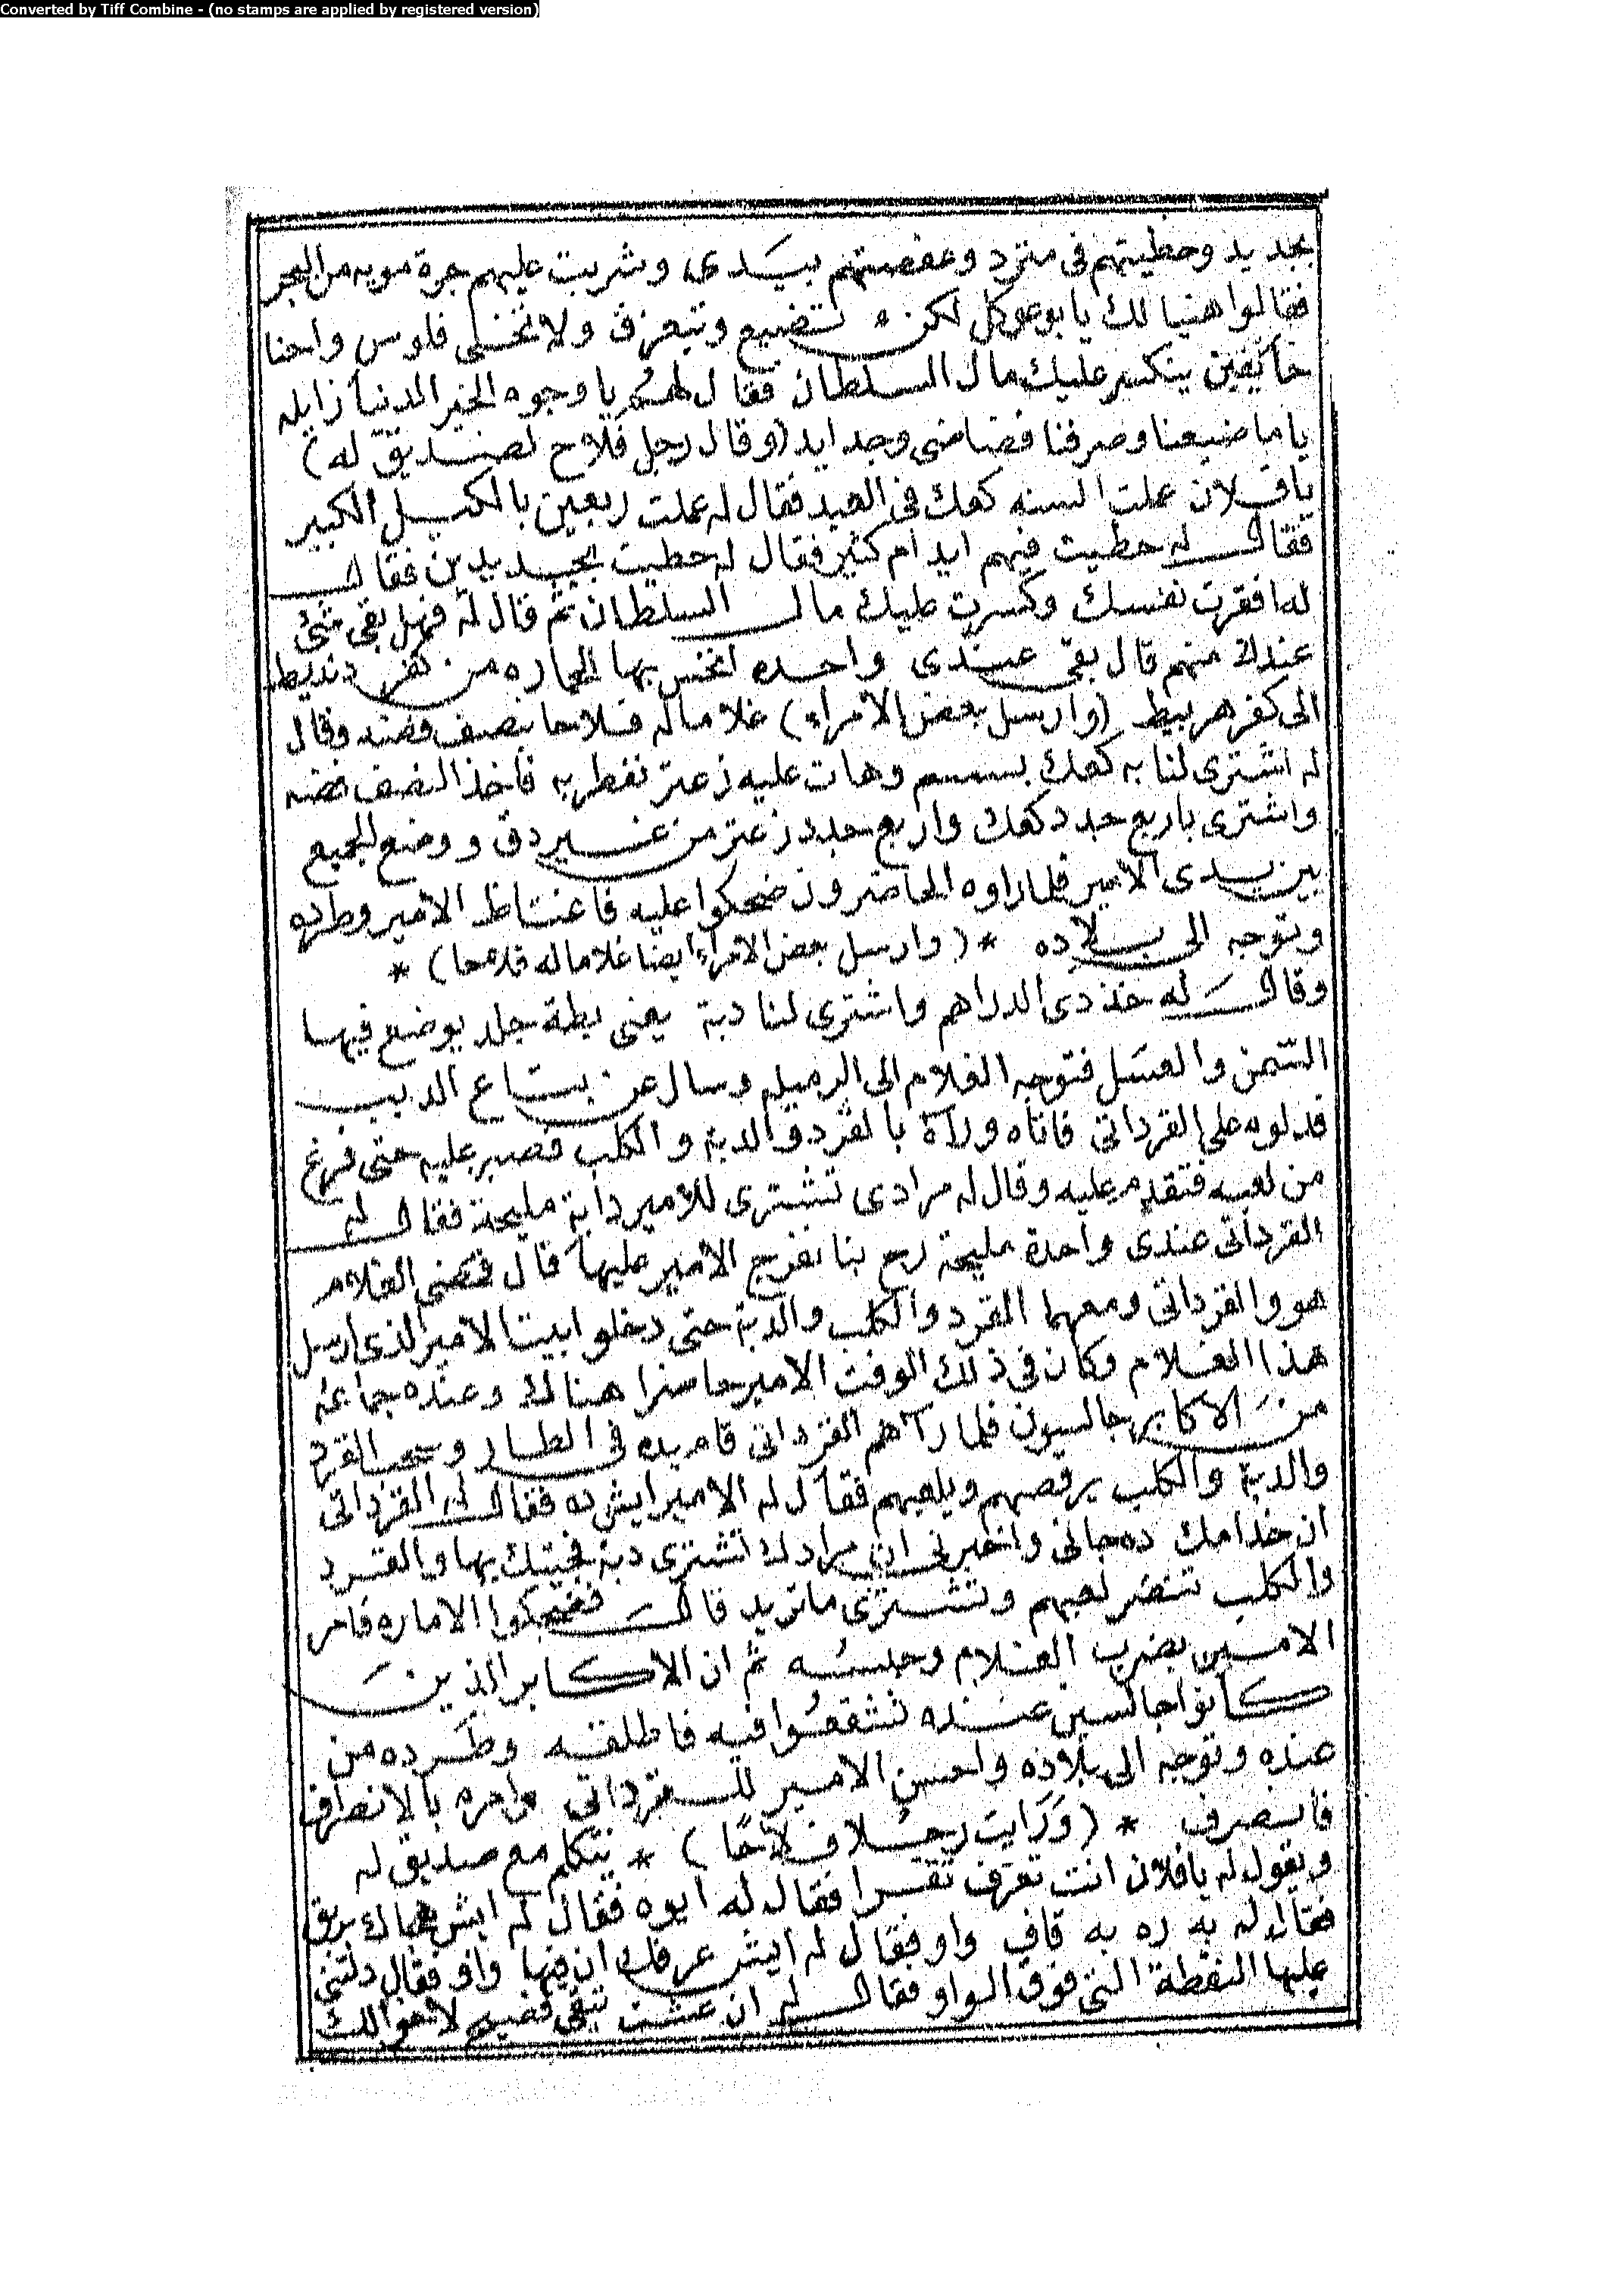 Converted by Tiff Combine - (no stamps are applied by registered version)
بجديد وحطيتهم فى متزد وعفصتهم بيدى وشربت عليهم جرة مويه من البحر
فقالوا هنيا لك يا بو عوكل لكنه تضيع وتبعزق ولا تخلى فلوس واحنا
خايفين ينكسر عليك مال السلطان فقال لهم يا وجوه الخير الدنيا زايله
ياما ضيعنا وصرفنا فضا ضى وجدايد (وقال رجل فلاح لصديق له)
يا فلان عملت السنه كعك فى العيد فقال له عملت ربعين بالكيل الكبير
فقال له حطيت فيهم ايدام كثير فقال له حطيت بجديدين فقال
له افقرت نفسك وكسرت عليك مال السلطان ثم قال له فهل بقى شئ
عندك منهم قال بقى عندى واحده انخس بها الحماره من كفر دنديط
الى كفر هربيط (وارسل بعض الامراء) غلاما له فلاحا بنصف فضه وقال
له اشترى لنا به كعك بسمسم وهات عليه زعتر نفطر به فاخذ النصف فضه
واشترى باربع جدد كعك واربع جدد زعتر من غير دق ووضع الجميع
بين يدى الامير فلما راوه الحاضرون ضحكوا عليه فاغتاظ الامير وطرده
وتوجه الى بلاده * (وارسل بعض الامراء ايضا غلاما له فلاحا) *
وقال له خذ دى الدراهم واشترى لنا دبة يعنى بطة جلد يوضع فيها
السمن والعسل فتوجه الغلام الى الرميله وسال عن بتاع الدبب
فدلوه على القرداتى فاتاه ورآه بالقرد والدبة والكلب فصبر عليه حتى فرغ
من لعبه فتقدم عليه وقال له مرادى تشترى للامير دابة مليحة فقال له
القرداتى عندى واحدة مليحة رح بنا نفرج الامير عليها قال فمضى الغلام
هو والقرداتى ومعهما القرد والكلب والدبة حتى دخلوا بيت الامير الذى ارسل
هذا الغلام وكان فى ذلك الوقت الامير حاضرا هناك وعنده جماعه
من الاكابر جالسون فلما رآهم القرداتى قام بيده فى الطار وسحب القرد
والدبة والكلب يرقصهم ويلعبهم فقال له الامير ايش ده فقال له القرداتى
ان خدامك ده جانى واخبرنى ان مرادك تشترى دبة فجيتك بها والقرد
والكلب تنضر لعبهم وتشترى ما تريد قال فضحكوا الاماره فامر
الامير بضرب الغلام وحبسه ثم ان الاكابر الذين
كانوا جالسين عنده تشفعوا فيه فاطلقه وطرده من
عنده وتوجه الى بلاده واحسن الامير للقرداتى وامره بالانصراف
فانصرف * (ورايت رجلا فلاحًا) * يتكلم مع صديق له
ويقول له يا فلان انت تعرف تقرا فقال له ايوه فقال له ايش هجاك بريق
فقال له به ره به قاف واو فقال له ايش عرفك ان فيها واو فقال دلتنى
عليها النقطة التى فوق الواو فقال له ان عشت تبقى فصيح لاخوالك